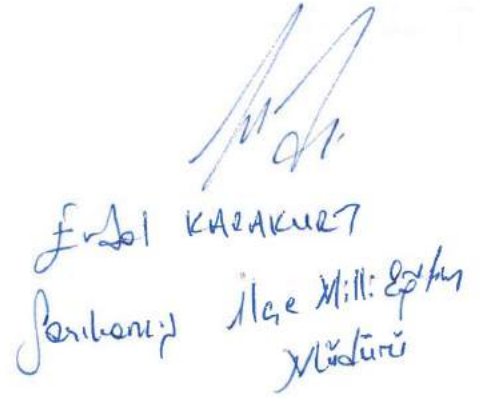 Erdal KARAKURT
Sarıkamış İlçe Milli Eğitim
Müdürü